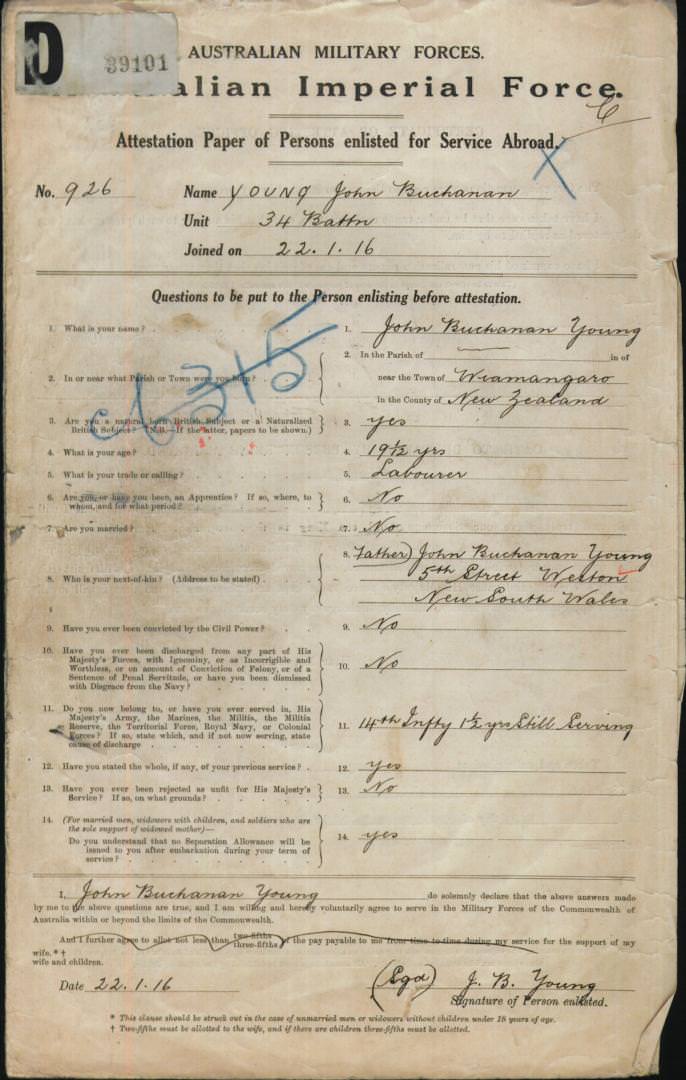 D 39101
AUSTRALIAN MILITARY FORCES.
alian Imperial Force.
Attestation Paper of Persons enlisted for Service Abroad.
No. 926 Name YOUNG John Buchanan
Unit 34 Battn
Joined on 22.1.16
Questions to be put to the Person enlisting before attestation.
1. What is your name? 1. John Buchanan Young
2. In or near what Parish or Town were you born? 2. In the Parish of in or
near the Town of Wiamangaro
in the County of New Zealand
3. Are you a natural born British Subject or a Naturalized
British Subject? (N.B.—If the latter, papers to be shown.) 3. yes
4. What is your age? 4. 19½ yrs
5. What is your trade or calling? 5. Labourer
6. Are you, or have you been, an Apprentice? If so, where, to
whom, and for what period? 6. No
7. Are you married? 7. No
8. Who is your next-of-kin? (Address to be stated) 8. Father) John Buchanan Young
5th Street Weston
New South Wales
9. Have you ever been convicted by the Civil Power? 9. No
10. Have you ever been discharged from any part of His
Majesty's Forces, with Ignominy, or as Incorrigible and
Worthless, or on account of Conviction of Felony, or of a
Sentence of Penal Servitude, or have you been dismissed
with Disgrace from the Navy? 10. No
11. Do you now belong to, or have you ever served in, His
Majesty's Army, the Marines, the Militia, the Militia
Reserve, the Territorial Force, Royal Navy, or Colonial
Forces? If so, state which, and if not now serving, state
cause of discharge 11. 14th Infty 1½ yrs Still Serving
12. Have you stated the whole, if any, of your previous service? 12. yes
13. Have you ever been rejected as unfit for His Majesty's
Service? If so, on what grounds? 13. No
14. (For married men, widowers with children, and soldiers who are
the sole support of widowed mother)—
Do you understand that no Separation Allowance will be
issued to you after embarkation during your term of
service? 14. yes
I, John Buchanan Young do solemnly declare that the above answers made
by me to the above questions are true, and I am willing and hereby voluntarily agree to serve in the Military Forces of the Commonwealth of
Australia within or beyond the limits of the Commonwealth.
And I further agree to allot not less than two-fifths three-fifths of the pay payable to me from time to time during my service for the support of my
wife.*†
wife and children.
Date 22.1.16 (Sgd) J. B. Young
Signature of Person enlisted.
* This clause should be struck out in the case of unmarried men or widowers without children under 18 years of age.
† Two-fifths must be allotted to the wife, and if there are children three-fifths must be allotted.